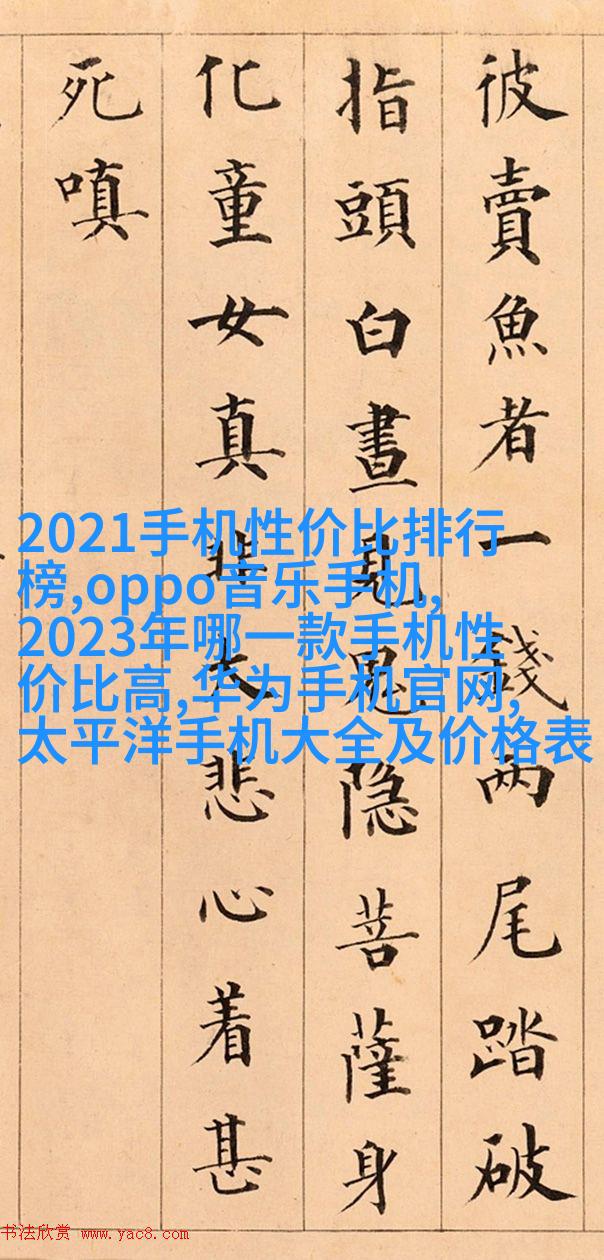 彼賣魚者一錢兩尾踏破
指頭白晝見鬼隐菩薩身
化童女真非大悲心着甚
死嗔
2021手机性价比排行
榜,oppo音乐手机,
2023年哪一款手机性
价比高,华为手机官网,
太平洋手机大全及价格表
书法欣赏 www.yac8.com